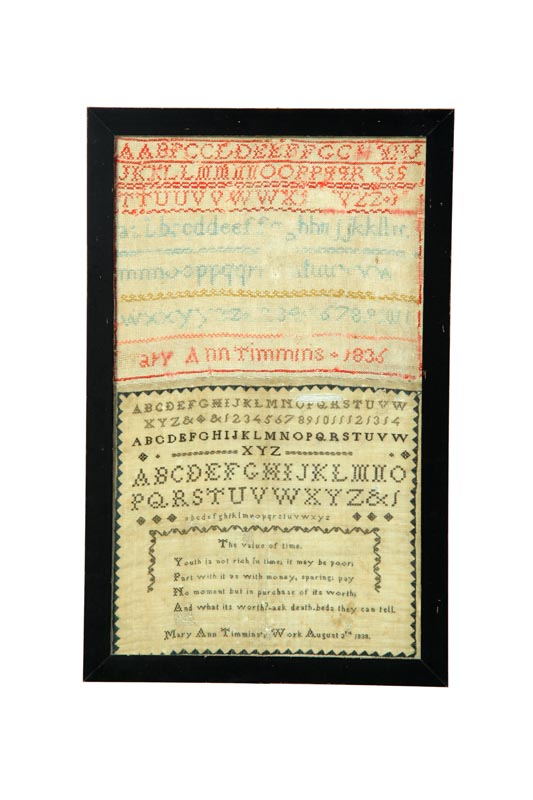 AABBCCLDEEFFGG
JKKLLMMNNOOPPQQRRSS
TTUUVVWWX YZZ
mnnooppqqr tuu
wxxyyzz 234 5678910
Ann Timmins 183
ABCDEFGHIJKLMNOPQRSTUVW
XYZ&&1234567891011121314
ABCDEFGHIJKLMNOPQRSTUVW
XYZ
ABCDEFGHIJKLMNO
PQRSTUVWXYZ&
abcdefghiklmnopqrstuvwxyz
The value of time.
Youth is not rich in time; it may be poor;
Part with it as with money, sparing; pay
No moment but in purchase of its worth;
And what its worth?-ask death-beds they can tell.
Mary Ann Timmins's Work August 3rd 1838.